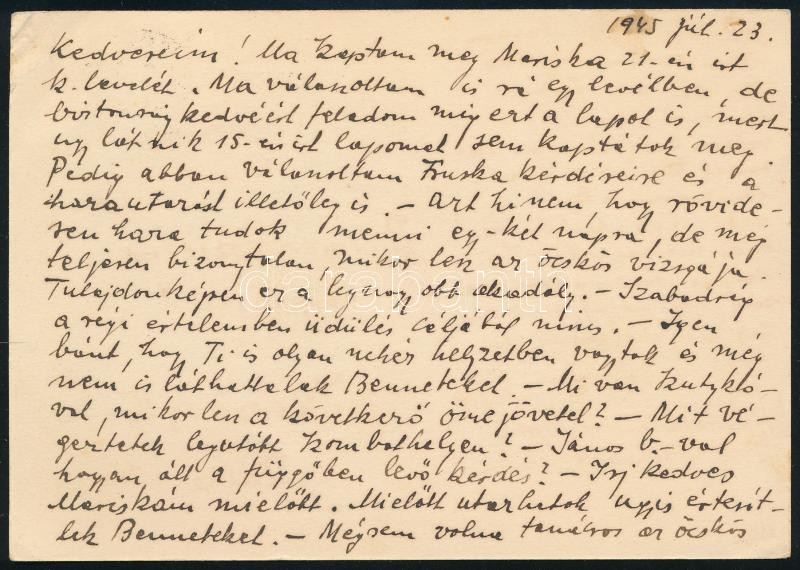 1945 júl. 23.
Kedveseim! Ma kaptam meg Mariska 21-én írt
k. levelét. Ma válaszoltam is rá egy levélben, de
biztonság kedvéért feladom még ezt a lapot is, mert
ugy látszik 15-én írt lapomat sem kaptátok meg.
Pedig abban válaszoltam kérdéseire és a
hazautazást illetőleg is. – Azt hiszem, hogy rövide-
sen haza tudok menni egy-két napra, de még
teljesen bizonytalan mikor lesz az öcskös vizsgája.
Tulajdonképen ez a legnagyobb akadály. – Szabadság
a régi értelemben üdülés céljából nincs. – Igen
bánt, hogy Ti is olyan nehéz helyzetben vagytok és még
nem is láthattalak Benneteket. – Mi van
val, mikor lesz a következő összejövetel? – Mit vé-
geztetek legutóbb Szombathelyen? – János b.-val
hogyan állt a függőben levő kérdés? – Írj kedves
Mariskám mielőbb. Mielőtt utazhatok ugyis értesít-
lek Benneteket. – Mégsem volna tanácsos az öcskös
darabanth